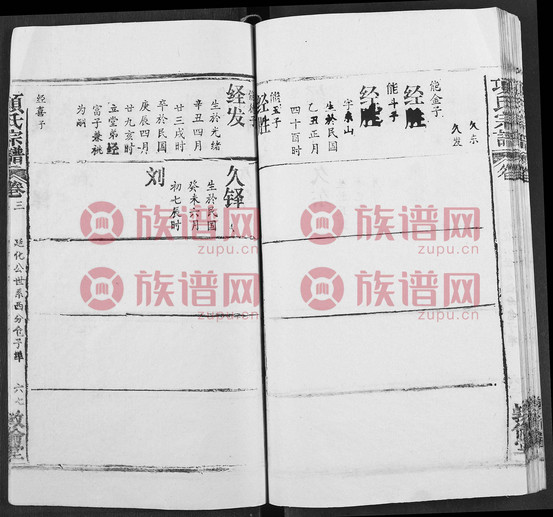 久示
久发
能金子
经胜
能斗子
经胜
字泉山
生於民国
乙丑正月
四十酉时
能五子
经胜
经发
生於光绪
辛丑四月
廿三戌时
卒於民国
庚辰四月
廿九亥时
立堂弟经
富子兼桃
为嗣
经喜子
久铎
生於民国
癸未六月
初七辰时
刘
項氏宗譜
卷三
廷化公世系西分仓子
六七
敦倫堂
項氏宗譜
族谱网
zupu.cn
族谱网
zupu.cn
族谱网
zupu.cn
族谱网
zupu.cn